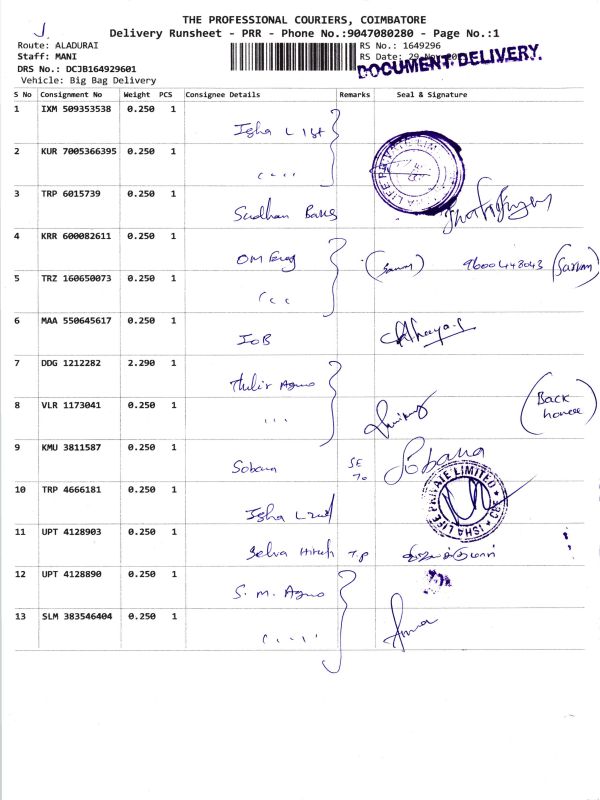 THE PROFESSIONAL COURIERS, COIMBATORE
Delivery Runsheet - PRR - Phone No.:9047080280 - Page No.:1
Route: ALADURAI
Staff: MANI
DRS No.: DCJB164929601
Vehicle: Big Bag Delivery
RS No.: 1649296
RS Date: 29-Nov
DOCUMENT DELIVERY.
S No Consignment No Weight PCS Consignee Details Remarks Seal & Signature
1 IXM 509353538 0.250 1
Isha
2 KUR 7005366395 0.250 1
" "
3 TRP 6015739 0.250 1
Sudhan
4 KRR 600082611 0.250 1
OM
9600448043
5 TRZ 160650073 0.250 1
" "
6 MAA 550645617 0.250 1
IOB
7 DDG 1212282 2.290 1
Thulir Agro
8 VLR 1173041 0.250 1
" "
(Back
house)
9 KMU 3811587 0.250 1
Sobana
Sobana
10 TRP 4666181 0.250 1
Isha
ISHA LIFE PRIVATE LIMITED * CBE *
11 UPT 4128903 0.250 1
Selva
12 UPT 4128890 0.250 1
S. M. Agro
13 SLM 383546404 0.250 1
" "